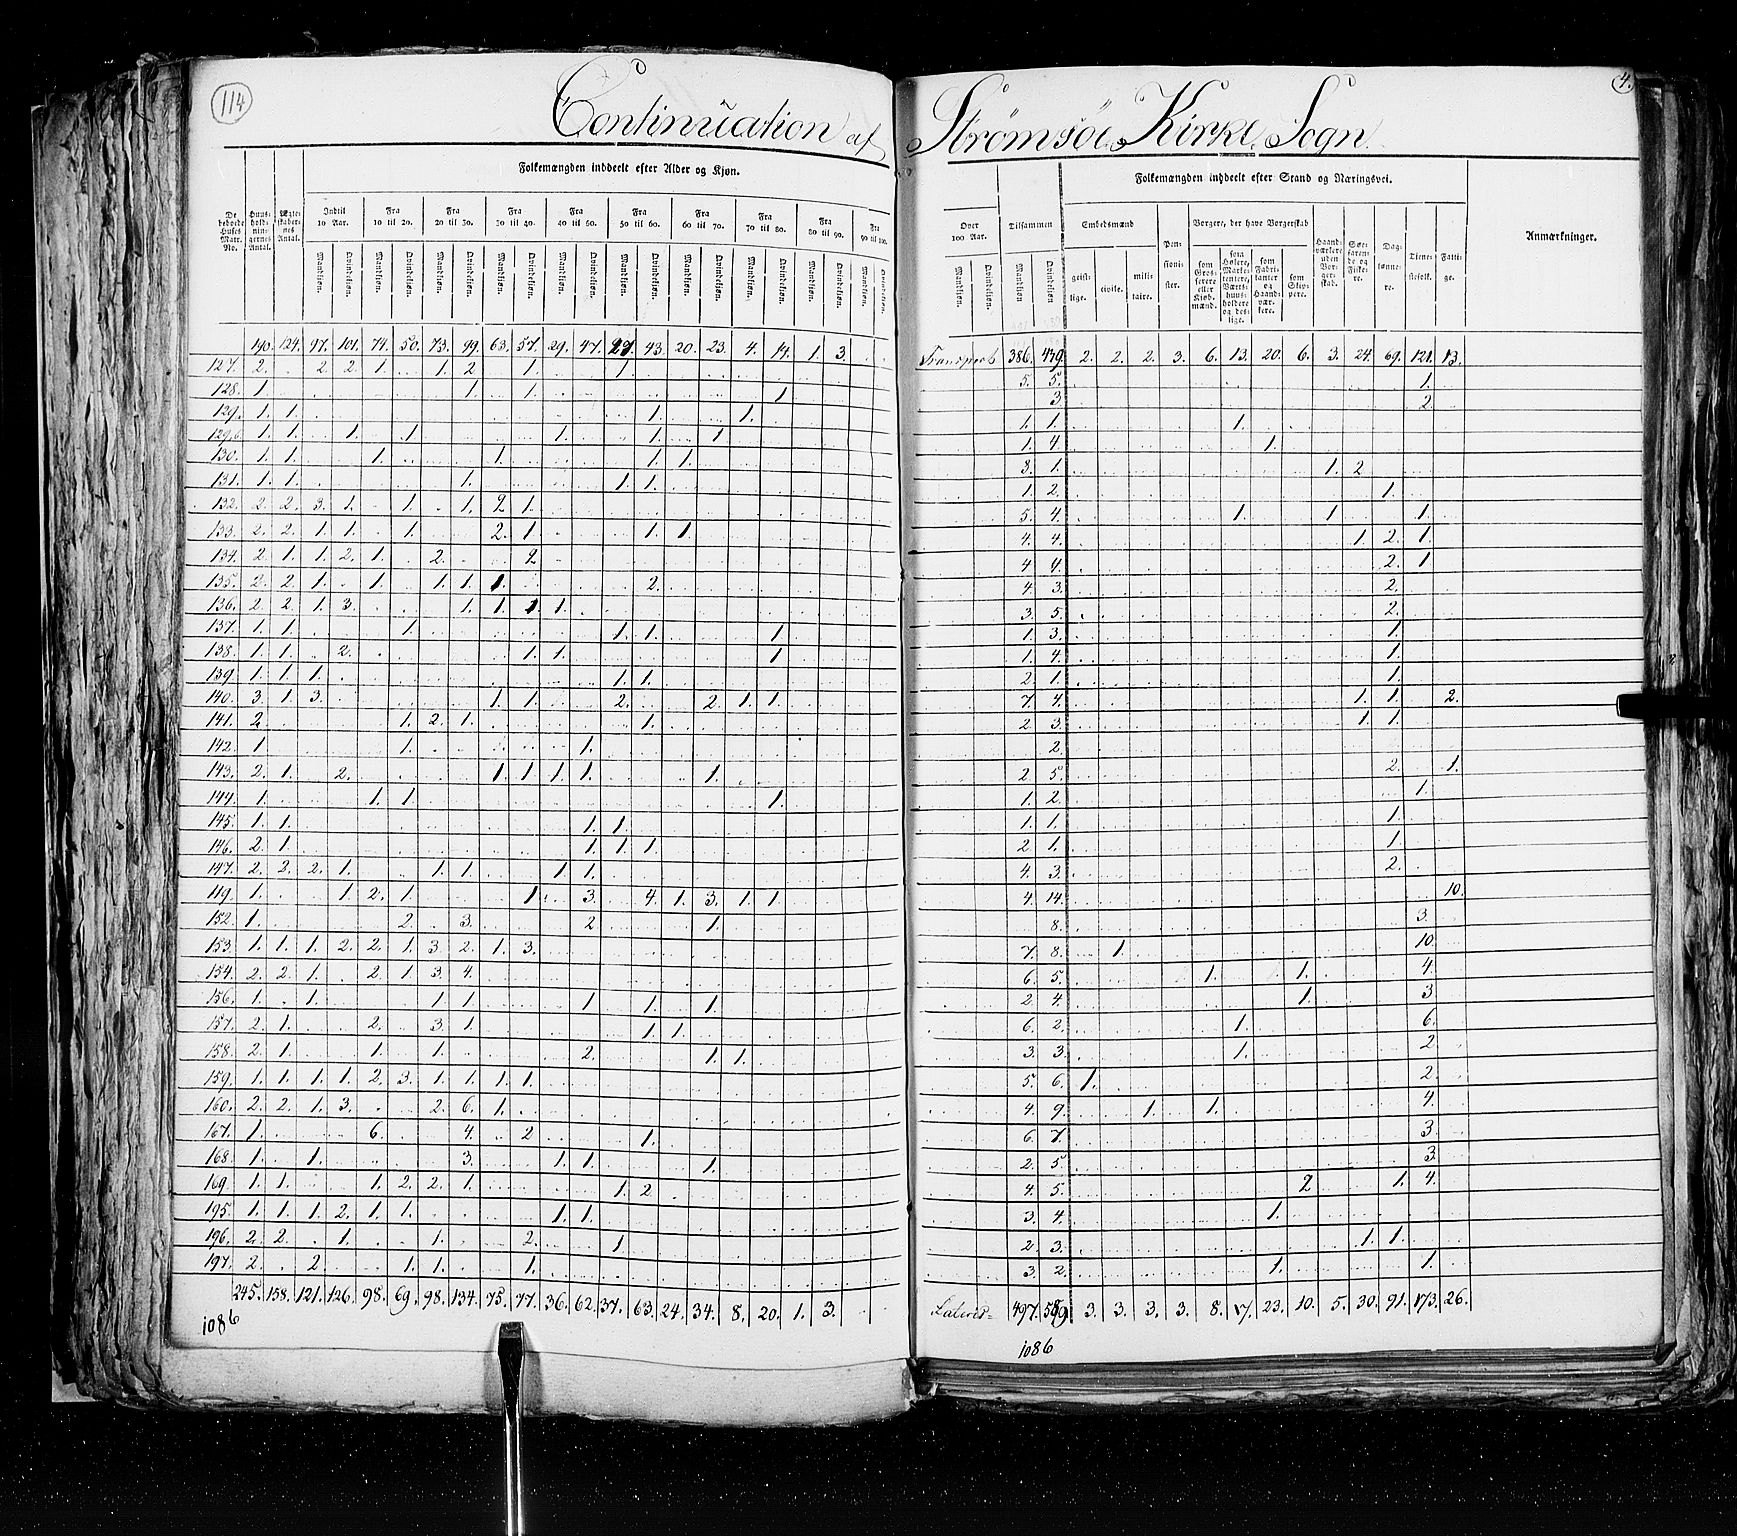 114
4.
Continuation af Strømsöe Kirke Sogn
Folkemængden inddeelt efter Alder og Kjøn.
Folkemængden inddeelt efter Stand og Næringsvei.
De beboede Huses Matr. No.
Huusholdningernes Antal.
Ægteskabernes Antal.
Indtil 10 Aar.
Fra 10 til 20.
Fra 20 til 30.
Fra 30 til 40.
Fra 40 til 50.
Fra 50 til 60.
Fra 60 til 70.
Fra 70 til 80.
Fra 80 til 90.
Fra 90 til 100.
Over 100 Aar.
Tilsammen
Embedsmænd
geistlige.
civile.
militaire.
Pensionister.
Borgere, der have Borgerskab
som Grosserere eller Kjøbmænd.
som Høkere, Marketentere, Værtshuusholdere og deslige.
som Fabrikanter og Haandværkere.
som Skippere.
Haandværkere uden Borgerskab.
Søefarende og Fiskere.
Daglønnere.
Tienestefolk.
Fattige.
Anmærkninger.
Mandkjøn. Qvindekjøn.
190. 124. 97. 101. 74. 50. 73. 99. 63. 57. 29. 47. 27. 43. 20. 23. 4. 14. 1. 3. Transport 386. 439. 2. 2. 2. 3. 6. 13. 20. 6. 3. 24. 69. 121. 13.
127. 2. 2. 2. 1. 1. 2. 1. 1. 5. 5. 1.
128. 1. 1. 1. 1. 3 2.
129. 1. 1. 1. 1. 1. 1. 1.
129.b 1. 1. 1. 1. 1. 1. 1. 1. 4. 1.
130. 1. 1. 1. 1. 1. 1. 3. 1. 1. 2
131. 1. 1. 1. 1. 1. 1. 2. 1.
132. 2. 2. 3. 1. 1. 1. 2 1. 5. 4. 1. 1. 1.
133. 2. 2. 1. 1. 1. 2. 1. 1. 1. 4. 4. 1. 2. 1.
134. 2. 1. 1. 2. 1. 2. 2 4 4. 2. 1
135. 2. 2. 1. 1. 1. 1. 1. 2. 4. 3. 2.
136. 2. 2. 1. 3. 1. 1. 1. 1. 3. 5. 2.
137. 1. 1. 1. 1. 1. 1. 1. 3. 1.
138. 1. 1. 2. 1. 1. 1 1. 4. 1.
139. 1. 1. 1. 1. 1. 2 1. 1.
140. 3 1. 3. 1. 1. 2. 2. 1. 1. 7. 4. 1. 1. 2.
141. 2. 1. 2. 1. 1. 2. 3. 1. 1.
142. 1 1. 1. 2.
143. 2. 1. 2. 1. 1. 1. 1. 1. 2 5. 2. 1.
144. 1. 1. 1. 1. 1. 2. 1.
145. 1. 1. 1. 1. 1. 1. 1.
146. 2. 1. 1. 1. 1. 2 1. 1.
147. 2. 2. 2. 1. 1. 1. 1. 1. 4. 3. 2.
149. 1. 1. 2. 1. 1. 3. 4. 1. 3. 1. 1. 4. 14. 10.
152. 1. 2. 3. 2 1. 8. 3.
153. 1. 1. 1. 2. 2. 1. 3. 2. 1. 3. 7. 8. 1. 10.
154. 2. 2. 1. 2. 1. 3. 4. 6. 5. 1. 1. 4.
156. 1. 1. 1. 1. 1. 1. 1. 2. 4. 1. 3
157. 2. 1. 2. 3. 1. 1. 1. 6. 2. 1. 6.
158. 2. 1. 1. 1. 2. 1. 1. 3. 3. 1. 2
159. 1. 1. 1. 1. 2. 3. 1. 1. 1. 1. 5. 6. 1. 2.
160. 2. 2. 1. 3. 2. 6. 1. 4. 9. 1. 1. 4.
167. 1. 6. 4. 2 1. 6. 7. 3
168. 1. 1. 3. 1. 1. 1. 2. 5. 3.
169. 1. 1. 1. 2. 2. 1. 1. 2 4. 5. 2 1. 4.
195. 1. 1. 1. 2. 1. 1. 1. 1. 3. 4. 1.
196. 2. 2. 1. 1. 2. 1 2 3. 1. 1.
197. 2. 2. 1. 1. 1. 3. 2. 1. 1.
245. 158. 121. 126. 98. 69. 98. 134. 75. 77. 36. 62. 37. 63. 24. 34. 8. 20. 1. 3. Lateris 497. 589. 3. 3. 3. 3. 8. 17. 23. 10. 5. 30. 91. 173. 26.
1086
1086